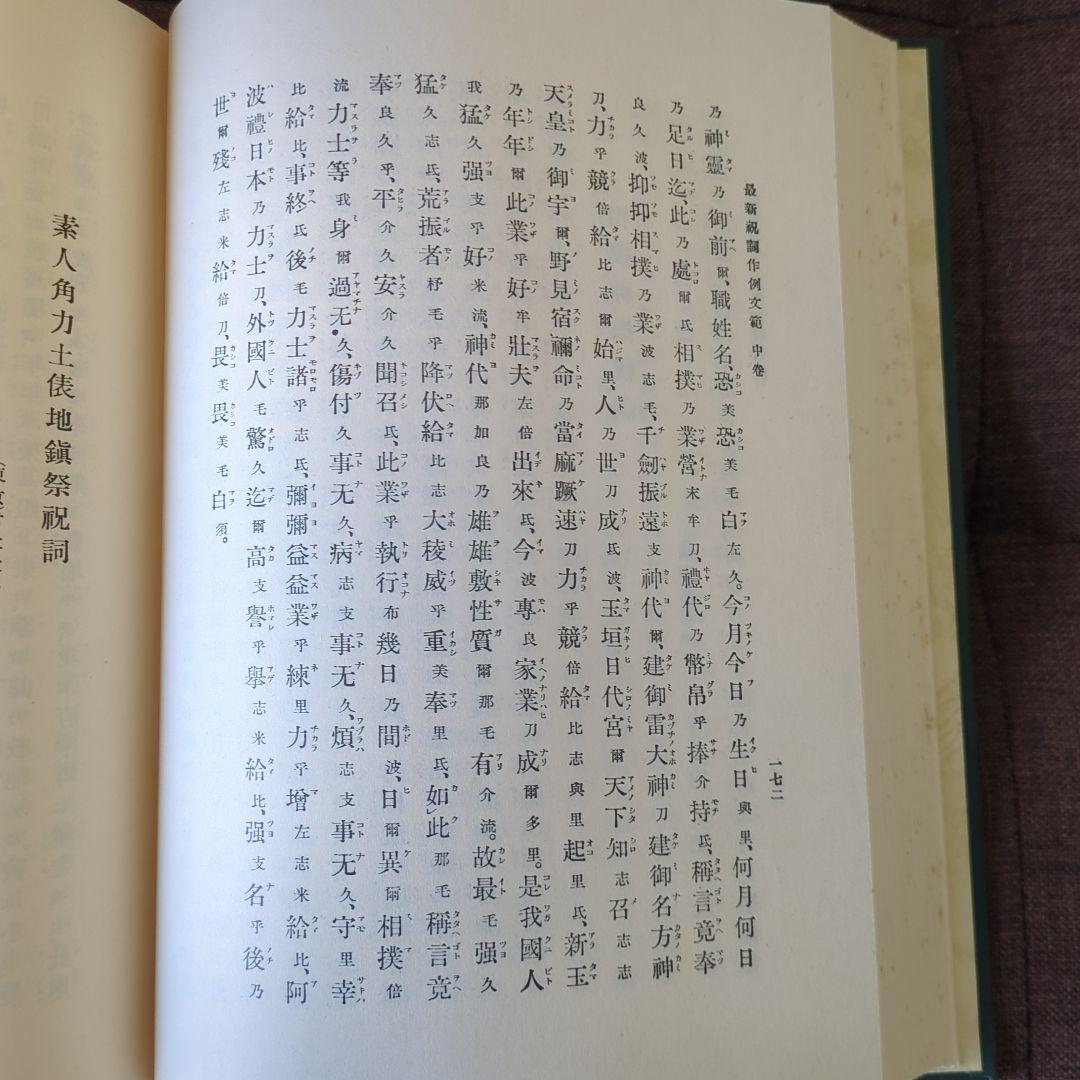 最新祝詞作例文範 中卷
一七二
乃神靈乃御前爾、職姓名、恐美恐美毛白左久。今月今日乃生日與里、何月何日
乃足日迄、此乃處爾氐相撲乃業營末牟刀、禮代乃幣帛乎捧介持氐、稱言竟奉
良久波、抑抑相撲乃業波志毛、千劍振遠支神代爾、建御雷大神刀建御名方神
刀、力乎競倍給比志爾始里、人乃世刀成氐波、玉垣日代宮爾天下知志召志志
天皇乃御宇爾、野見宿禰命乃當麻蹶速刀力乎競倍給比志與里起里氐、新玉
乃年年爾此業乎好牟壯夫左倍出來氐、今波專良家業刀成爾多里。是我國人
我猛久强支乎好米流、神代那加良乃雄雄敷性質爾那毛有介流。故最毛强久
猛久志氐、荒振者杼毛乎降伏給比志大稜威乎重美奉里氐、如此那毛稱言竟
奉良久乎、平介久安介久聞召氐、此業乎執行布幾日乃間波、日爾異爾相撲倍
流力士等我身爾過无久、傷付久事无久、病志支事无久、煩志支事无久、守里幸
比給比、事終氐後毛力士諸乎志氐、彌彌益益業乎練里力乎增左志米給比、阿
波禮日本乃力士刀、外國人毛驚久迄爾高支譽乎擧志米給比、强支名乎後乃
世爾殘左志米給倍刀、畏美畏美毛白須。
素人角力土俵地鎭祭祝詞